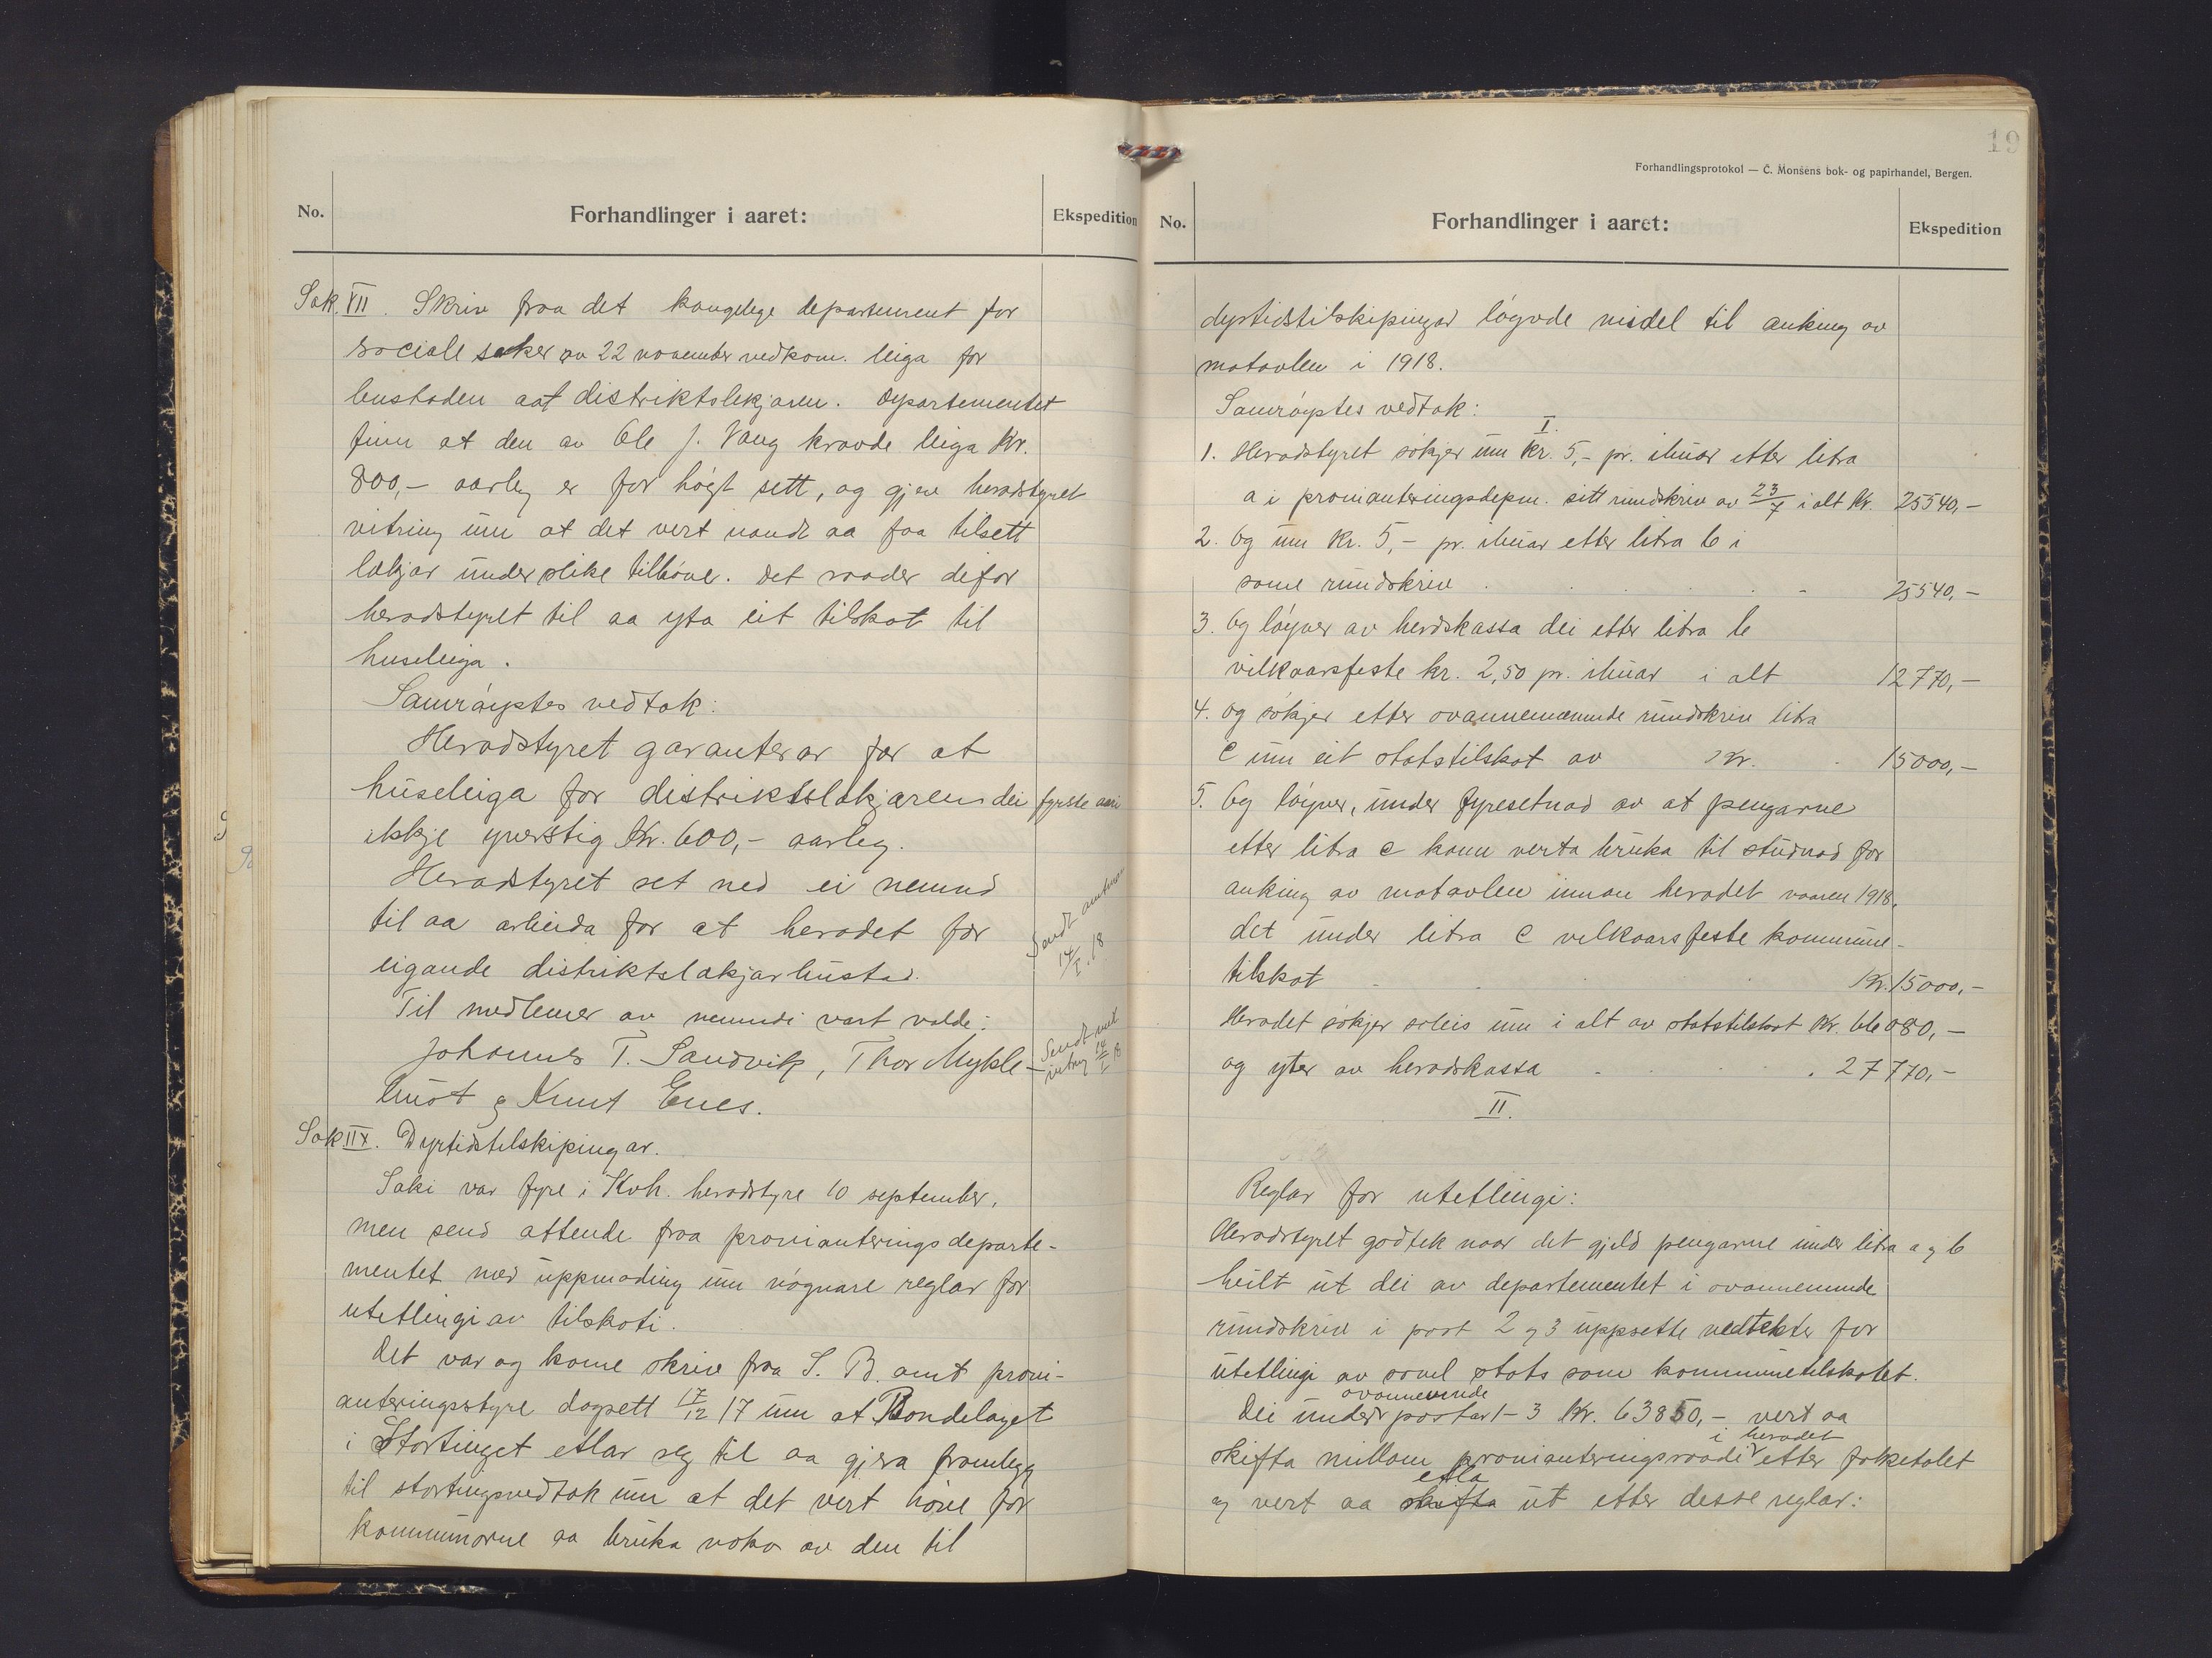 No.
Forhandlinger i aaret:
Ekspedition
Sak. VII. Skriv fraa det kongelege departement for
sociale saker av 22 november vedkom. leiga for
bustaden aat distriktslækjaren. Departementet
finn at den av Ole J. Vang kravde leiga Kr.
800,- aarleg er for høgt sett, og gjev heradstyret
vitring um at det vert vandt aa faa tilsett
lækjar under slike tilhøve. Det raader difor
heradstyret til aa yta eit tilskot til
husleiga.
Samrøystes vedtak:
Heradstyret garanterar for at
huseleiga for distriktslækjaren dei fyrste aari
ikkje yverstig Kr. 600,- aarleg.
Heradstyret set ned ei nemnd
til aa arbeida for at heradet fær
eigande distriktslækjarbustad.
Sendt amtman
14/I.18.
Til medlemer av nemndi vart valde:
Johannes T. Sandvik, Thor Mykle-
bust og Knut Enes.
Sendt med
vitring 14/I 18
Sak IIX. Dyrtidstilskipingar.
Saki var fyre i Kvh. heradstyre 10 september,
men send attende fraa provianteringsdeparte-
mentet med uppmoding um nøgnare reglar for
utetlingi av tilskoti.
Det var og kome skriv fraa S. B. amt provi-
anteringsstyre dagsett 17/12 17 um at Bondelaget
i Stortinget etlar seg til aa gjera framlegg
til stortingsvedtak um at det vert høve for
kommunorne aa bruka noko av den til
19
Forhandlingsprotokol — C. Monsens bok- og papirhandel, Bergen.
No.
Forhandlinger i aaret:
Ekspedition
dyrtidstilskipingar løgvde midel til auking av
matavlen i 1918.
Samrøystes vedtak:
I.
1. Heradstyret søkjer um kr. 5,- pr. ibuar etter litra
a i provianteringsdepm. sitt rundskriv av 23/7 i alt Kr. 25540,-
2. Og um kr. 5,- pr. ibuar etter litra b i
same rundskriv 25540,-
3. Og løyver av herdskassa dei etter litra b
vilkaarsfeste kr. 2,50 pr. ibuar i alt 12770,-
4. og søkjer etter ovannemnde rundskriv litra
C um eit statstilskot av Kr. 15000,-
5. Og løyver, under fyresetnad av at pengarne
etter litra c kann verta bruka til studnad for
auking av matavlen innan heradet vaaren 1918,
det under litra C vilkaarsfeste kommune-
tilskot Kr. 15000,-
Heradet søkjer soleis um i alt av statstilskot Kr. 66080,-
og yter av heradskassa 27770,-
II.
Reglar for utetlingi:
Heradstyret godtek naar det gjeld pengarne under litra a og b
heilt ut dei av departementet i ovannemnde
rundskriv i post 2 og 3 uppsette vedtekter for
utetlingi av saavel stats som kommunetilskotet.
Dei under ovannemnde postar 1-3 Kr. 63850,- vert aa
skifta millom provianteringsraadi i heradet etter folketalet
og vert aa skifta etla ut etter desse reglar: